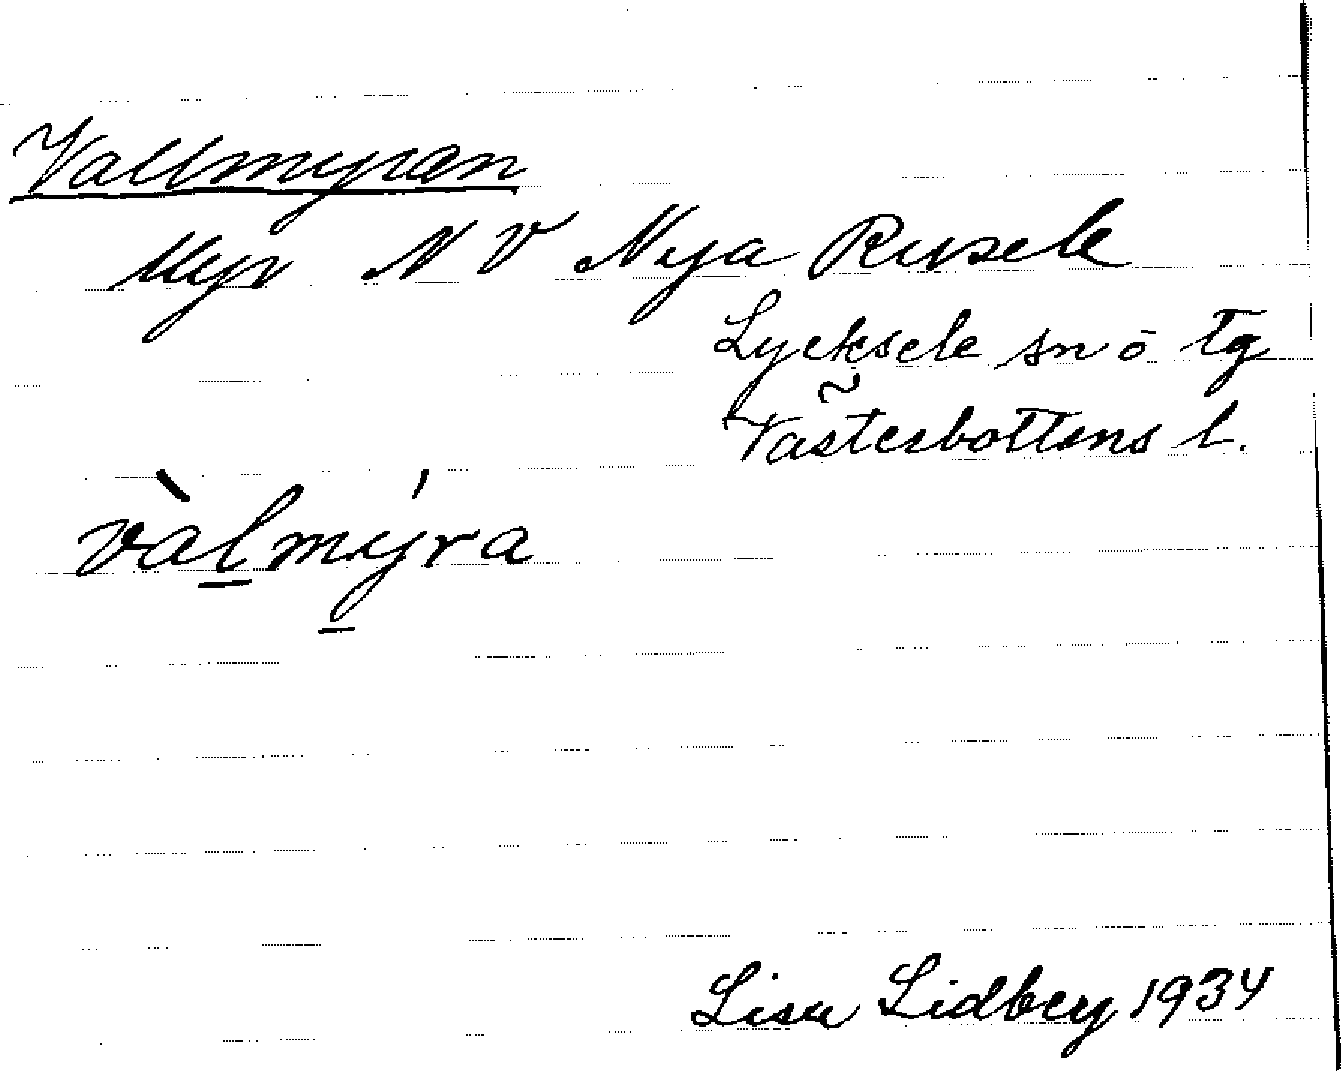 Vallmyran
Myr N V Nya Rusele
Lycksele sn o tg
Västerbottens l.
vàl̲mýra
Lisa Lidberg 1934